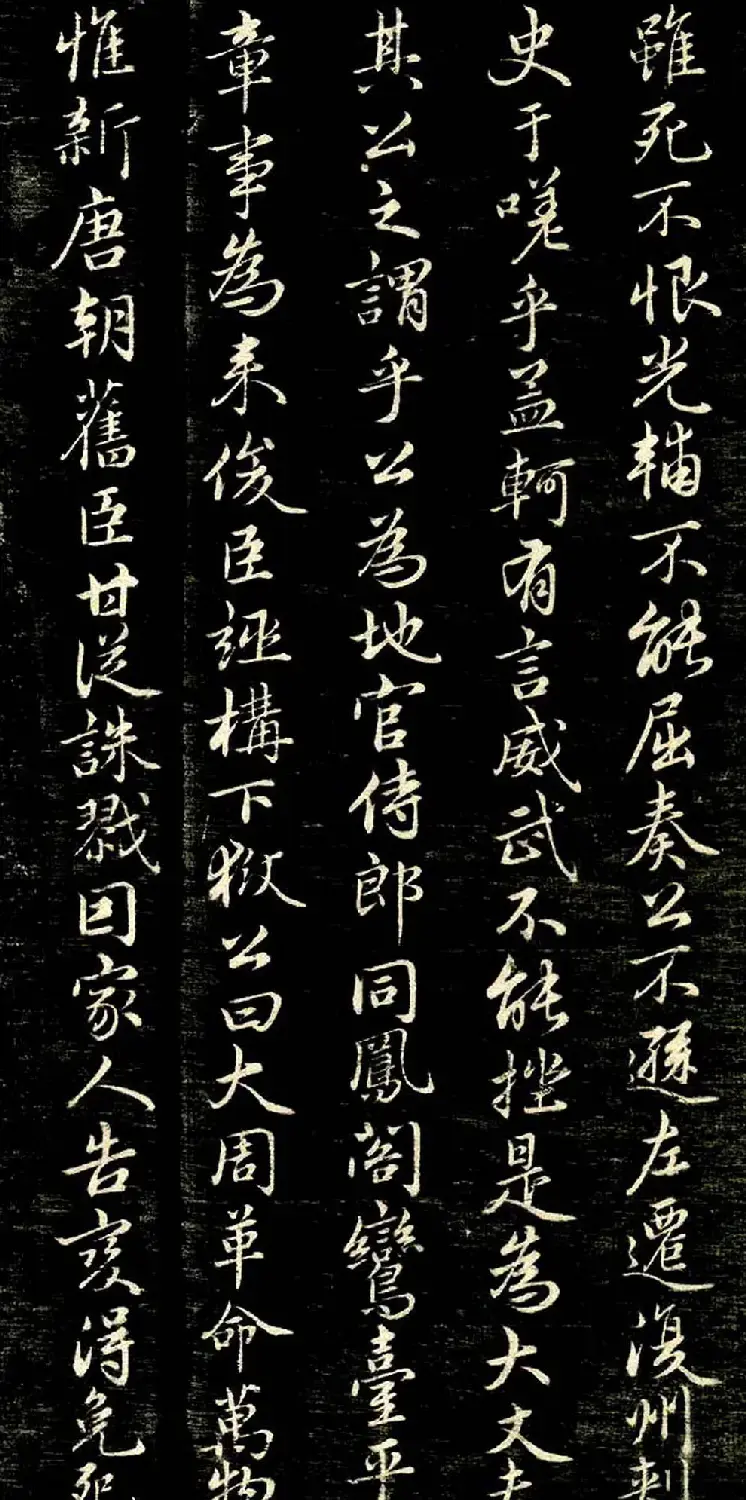 雖死不恨光輔不能屈奏公不遜左遷復州刺
史于嗟乎孟軻有言威武不能挫是為大丈夫
其公之謂乎公為地官侍郎同鳳閣鸞臺平
章事為来俊臣誣構下獄公曰大周革命萬物
惟新唐朝舊臣甘從誅戮因家人告變得免死